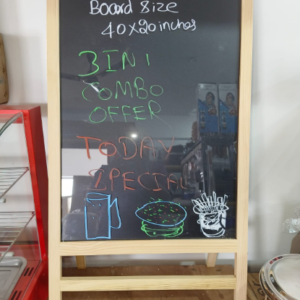 Board size
40x20 inches
3 IN 1
COMBO
OFFER
TODAY
SPECIAL